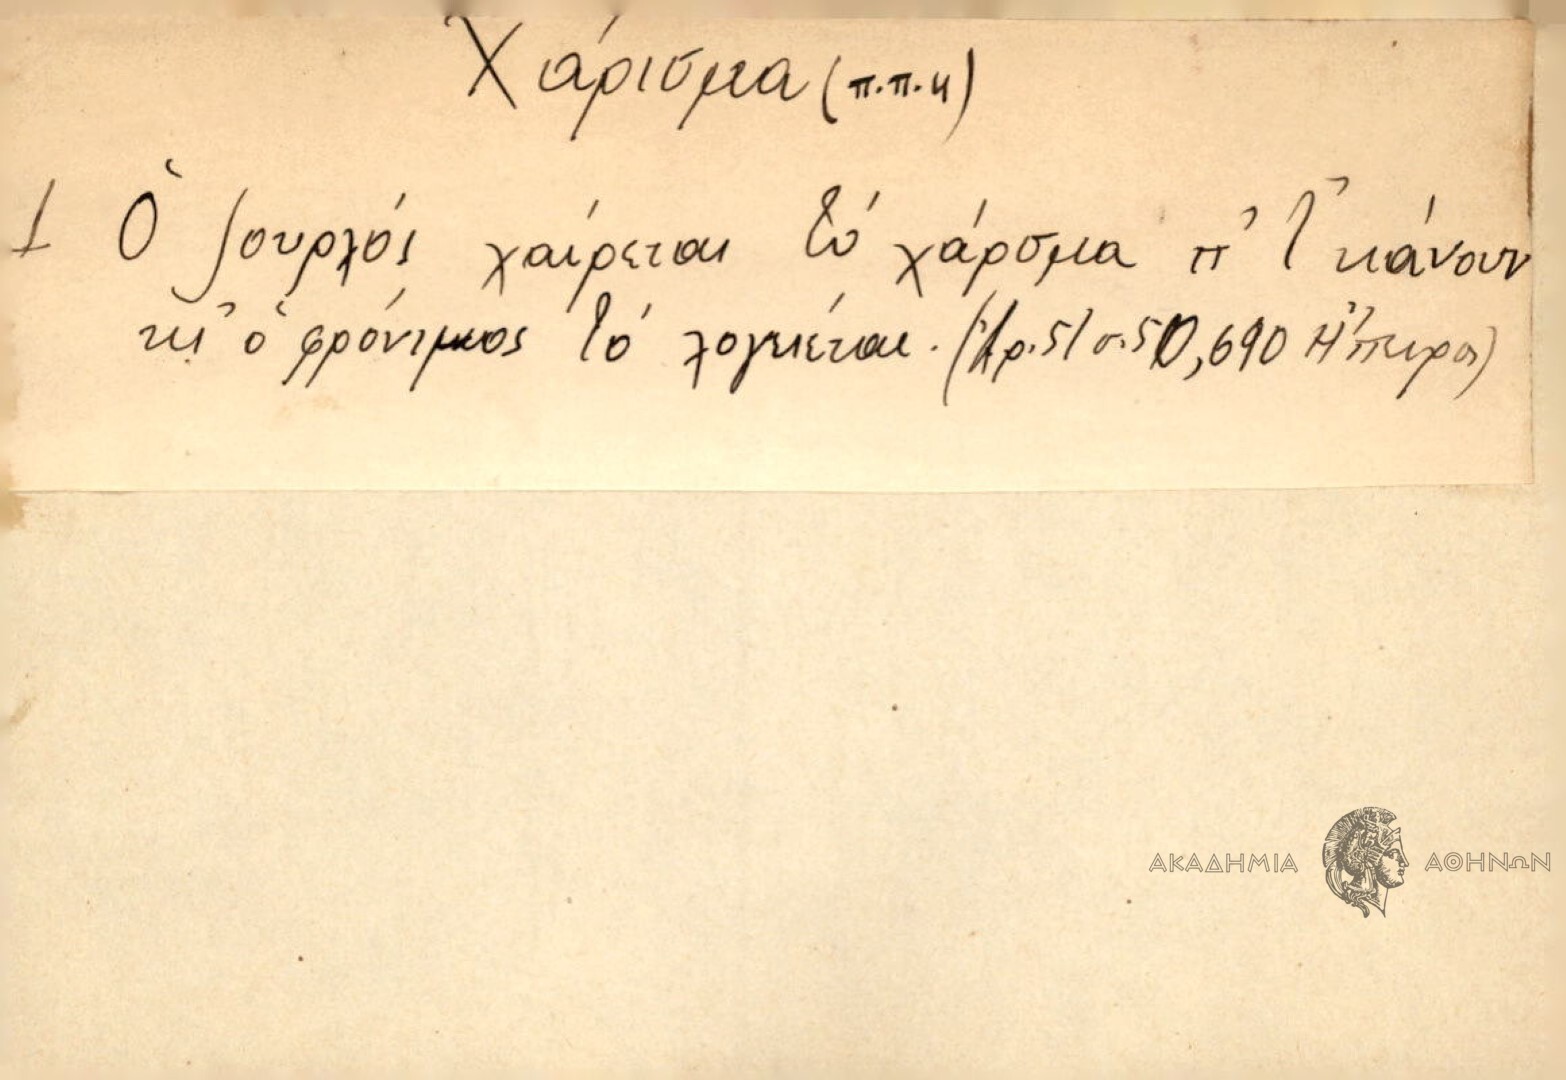 Χάρισμα (π.π.κ)
1 Ὁ ζουρλός χαίρεται τό χάρσμα π' τ' κάνουν
κι' ὁ φρόνιμος τό λογιέται. (Ἀρ. 51 σ. 50, 690 Ἤπειρος)
ΑΚΑΔΗΜΙΑ ΑΘΗΝΩΝ